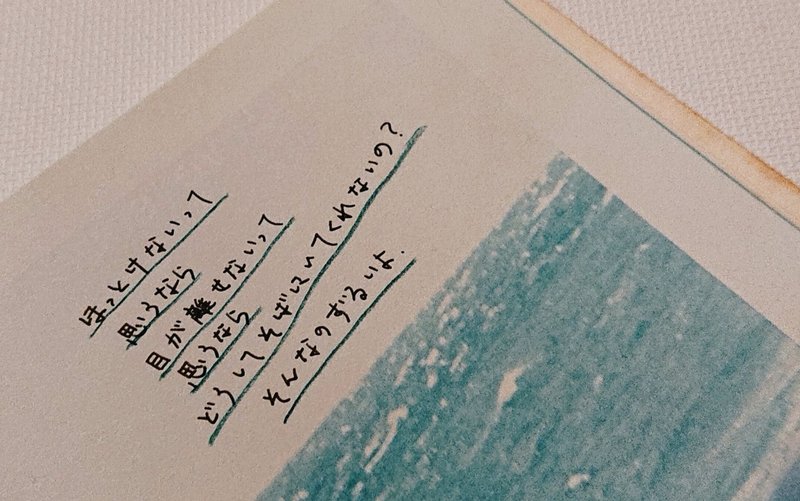 ほっとけないって
思うなら
目が離せないって
思うなら
どうしてそばにいてくれないの?
そんなのずるいよ.